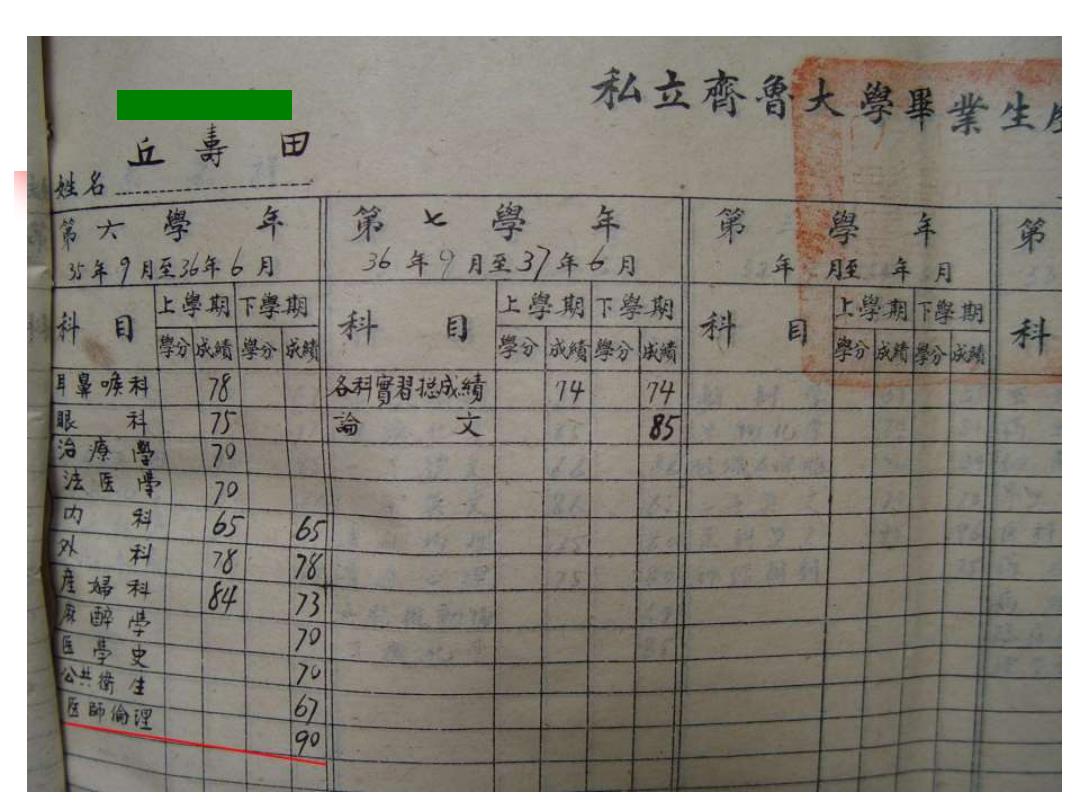 私立齊魯大學畢業生
丘壽田
姓名
第六學年 第七學年 第 學年 第
35年9月至36年6月 36年9月至37年6月 年 月至 年 月
科目 上學期 下學期 科目 上學期 下學期 科目 上學期 下學期 科
學分 成績 學分 成績 學分 成績 學分 成績 學分 成績 學分 成績
耳鼻喉科 78 各科實習總成績 74 74
眼科 75 論文 85
治療學 70
法医學 70
内科 65 65
外科 78 78
産婦科 84 73
麻醉學 70
医學史 70
公共衛生 67
医師倫理 90